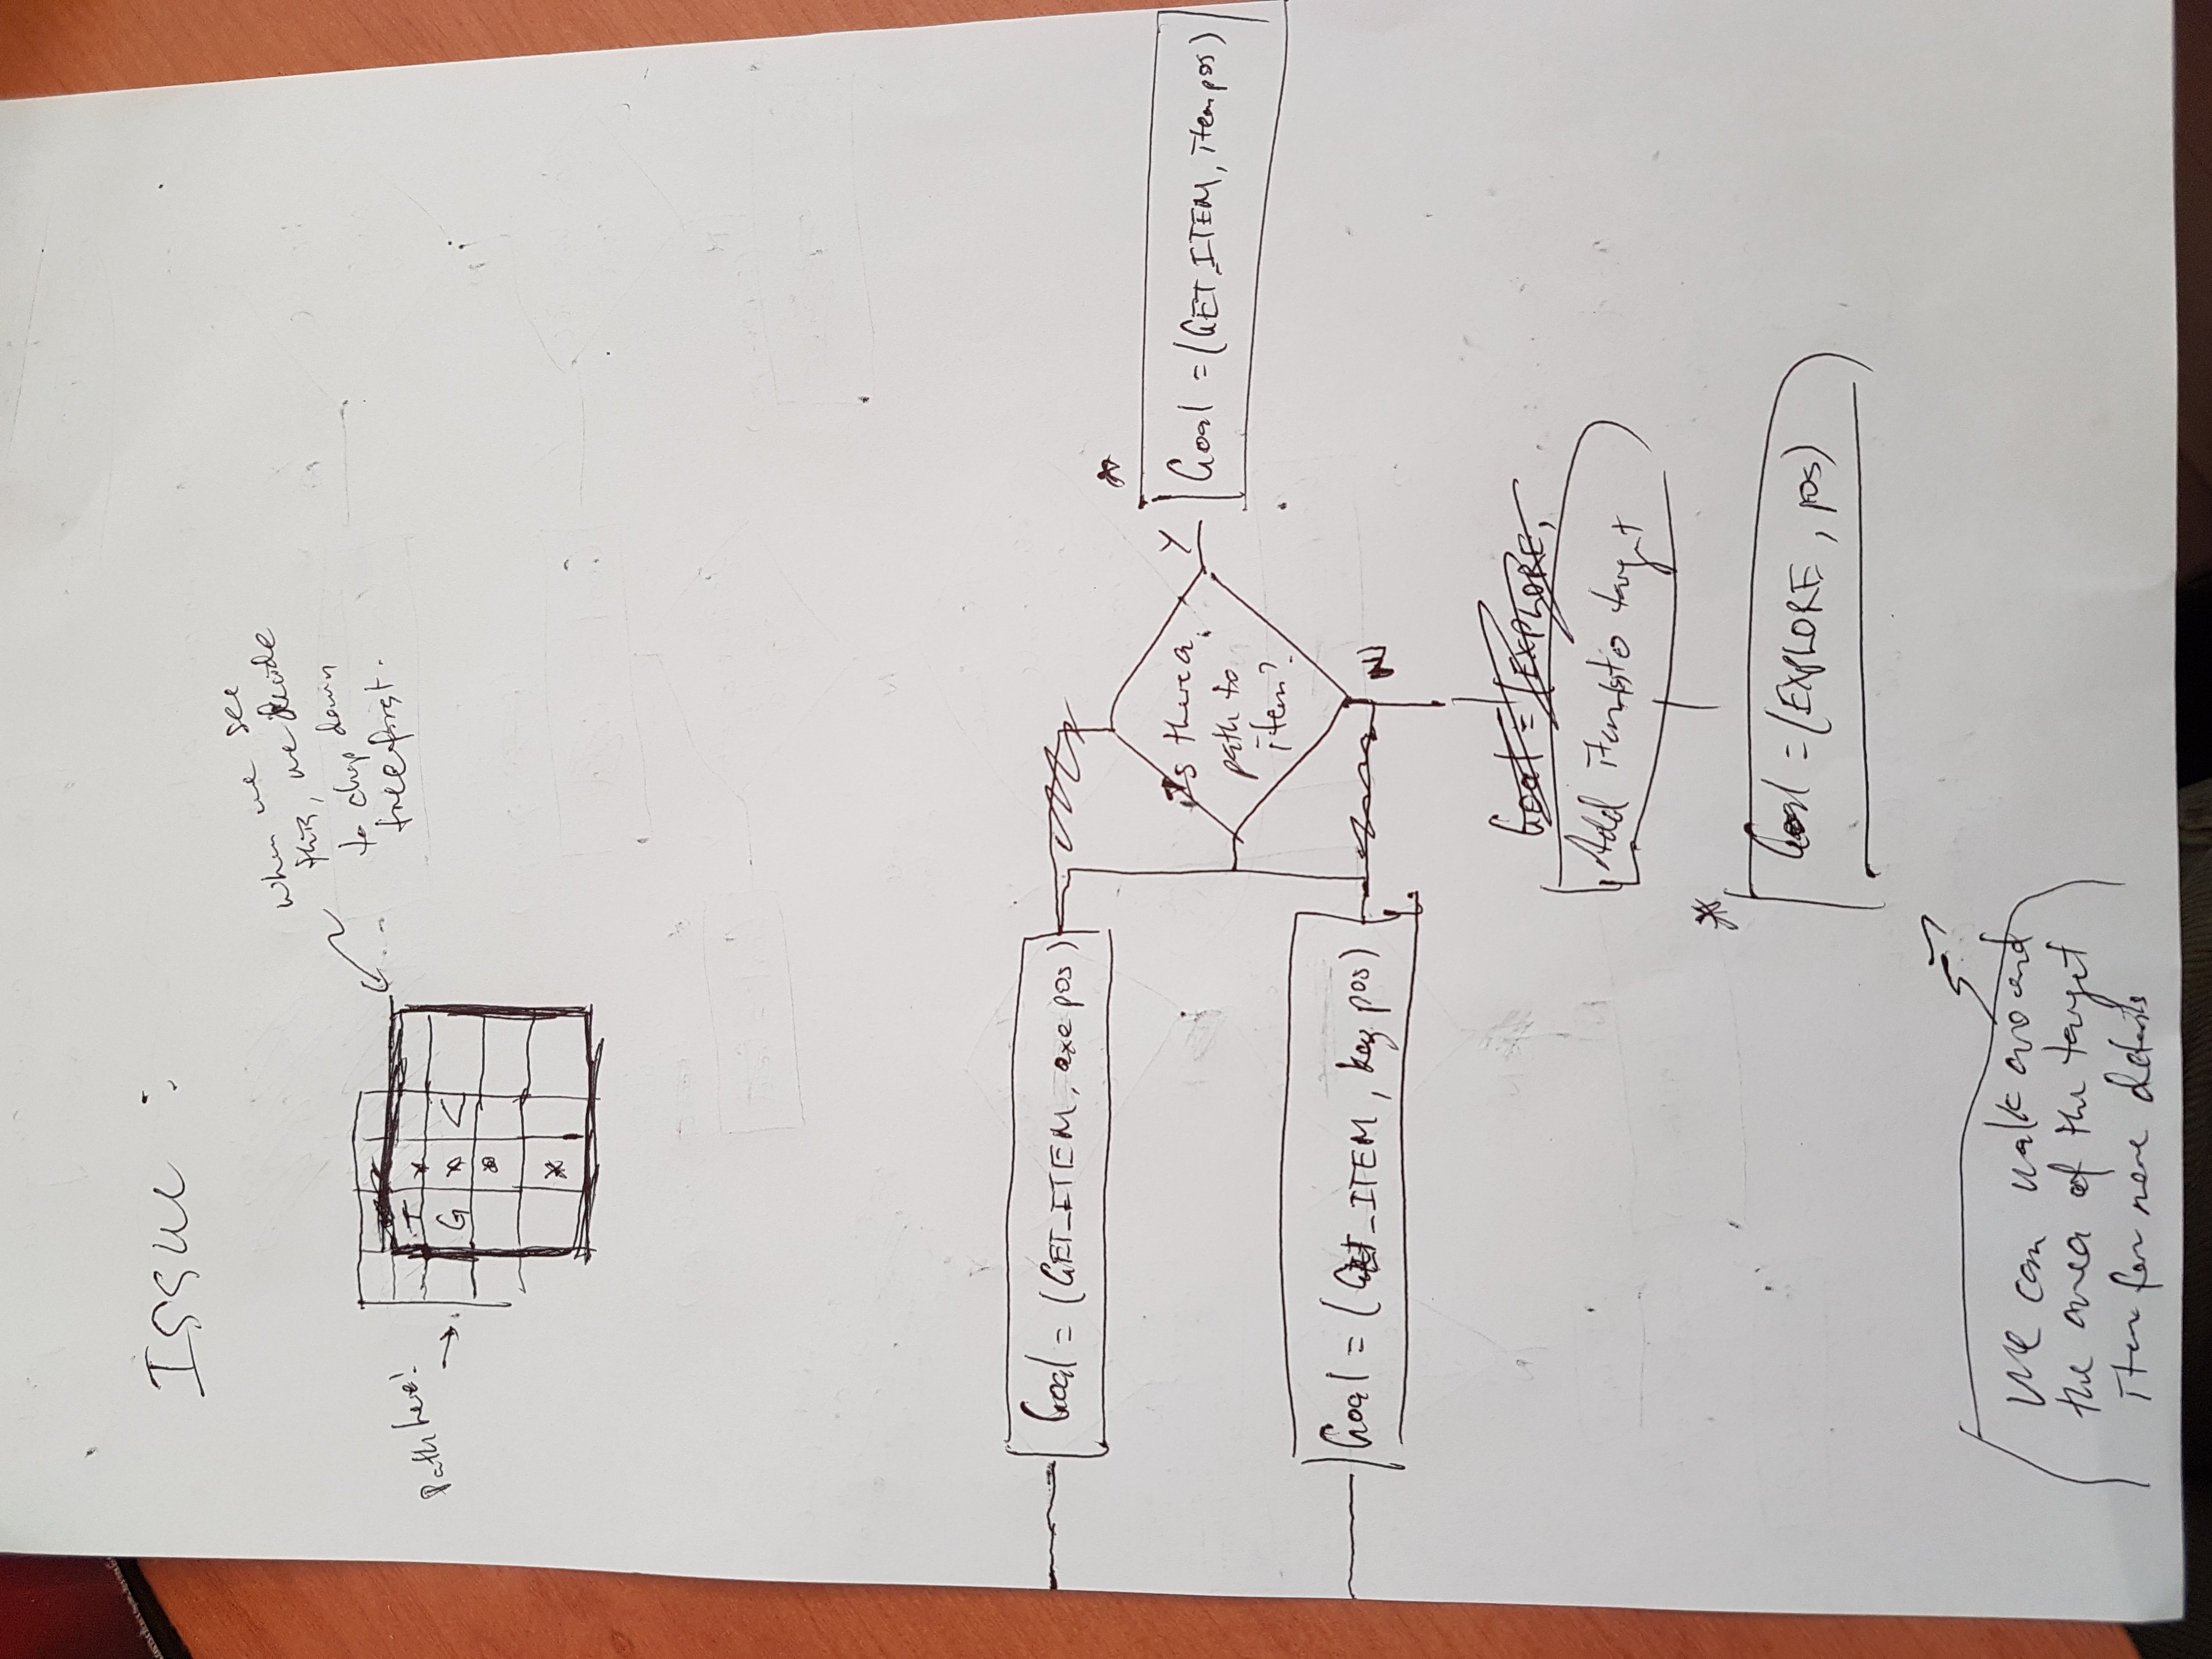 Issue :
when we see
this, we decide
to chop down
tree first.
Path here!
T *
G * <
*
*
Goal = (GET_ITEM, axe pos)
Is there a
path to
item?
Y
*
Goal = (GET_ITEM, item pos)
Goal = (GET_ITEM, key pos)
N
Goal = (EXPLORE,
Add item to target
*
Goal = (EXPLORE, pos)
We can walk around
the area of the target
item for more details